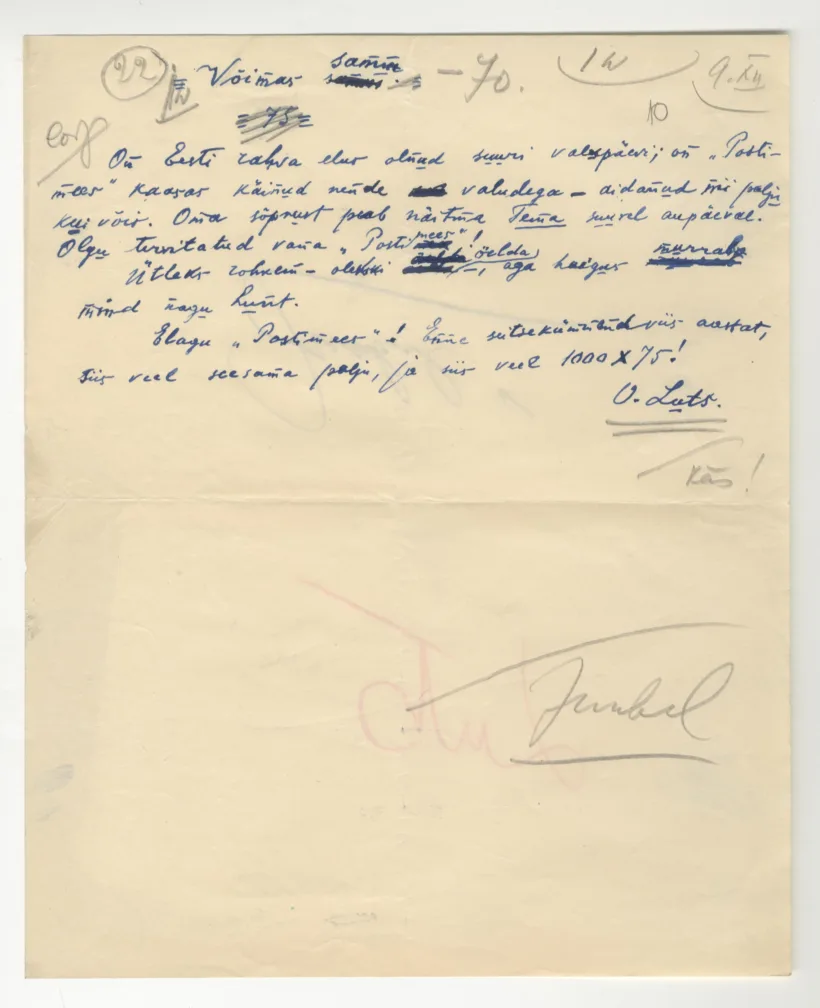 22 Võimas samm - 70. 9. XII
75
10
On Eesti rahva elus olnud suuri valupäevi; on „Posti-
mees" kaasas käinud nende valudega - aidanud nii palju
kui võis. Oma sõprust peab näitma Tema suurel aupäeval.
Olgu tervitatud vana „Postimees"!
Ütleks rohkem - oleks ju öelda, aga haigus murrab
mind nagu hunt.
Elagu „Postimees"! Enne seitsekümmend viis aastat,
siis veel seesama palju, ja siis veel 1000 X 75!
O. Luts.
Käs!
Juubel